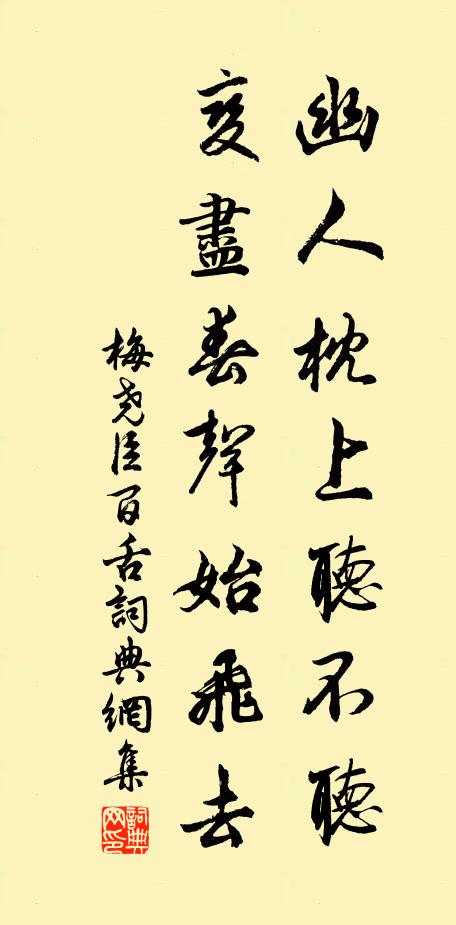 幽人枕上聽不聽
变盡春聲始飛去
梅堯臣百舌詞典網集
詞典網印